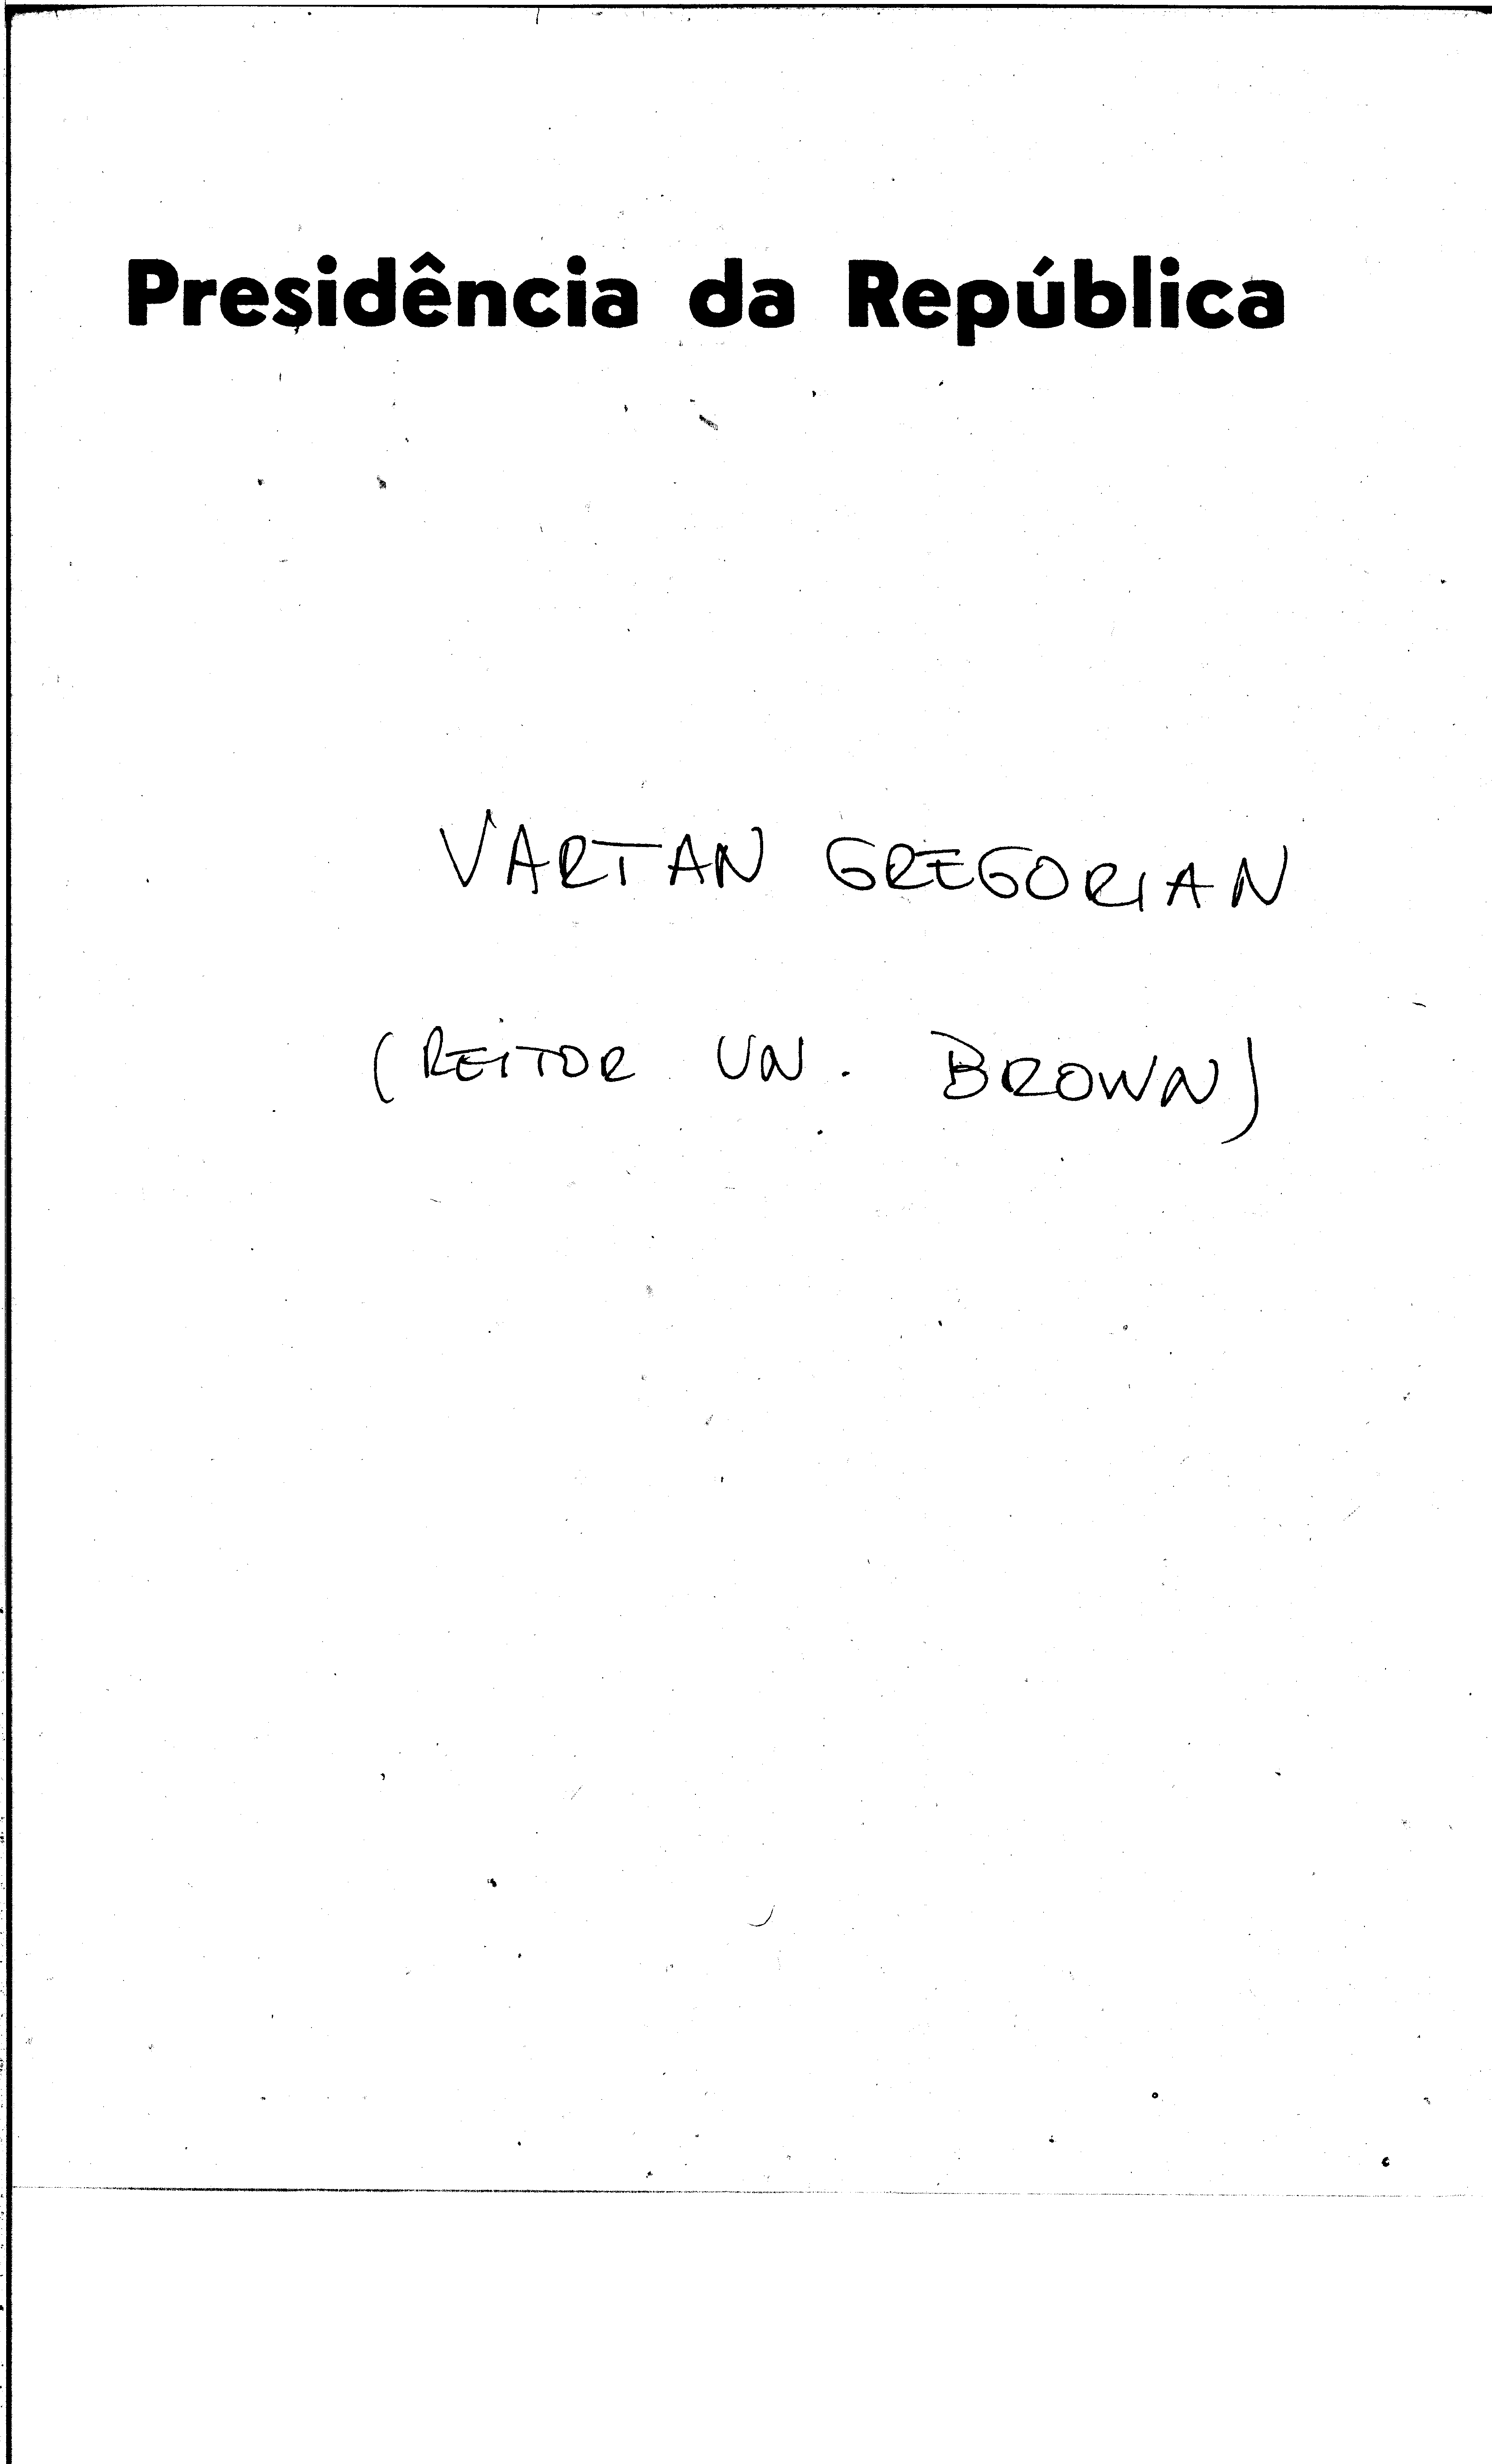 Presidência da República
VARTAN GREGORIAN
(REITOR UN. BROWN)